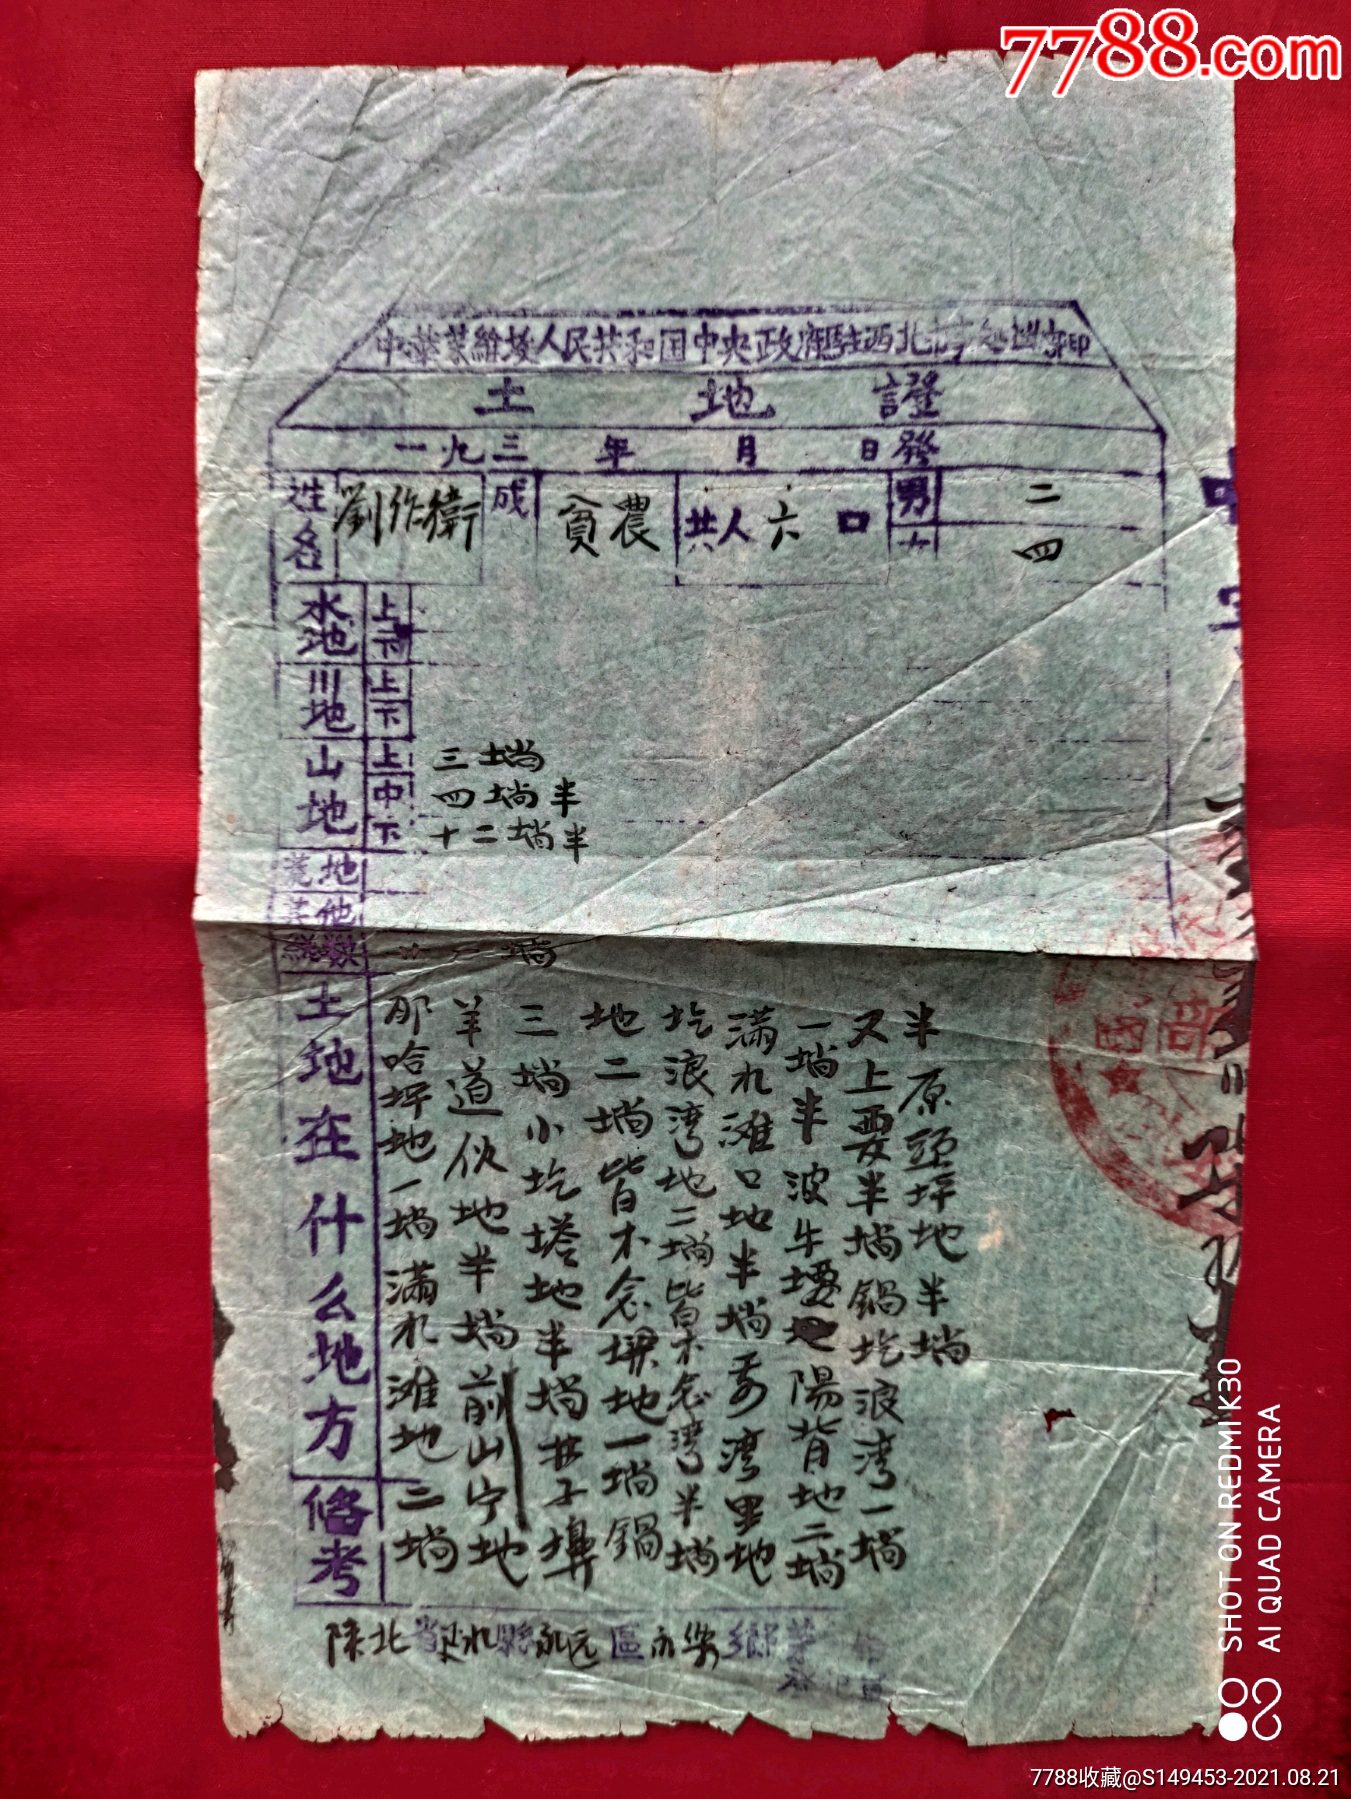 7788.com
中華蘇維埃人民共和国中央政府駐西北办事処土地部印
土地證
一九三 年 月 日發
姓名 劉作衛 成 貧農 共人六口 男 二
女 四
水地 上
下
川地 上
下
山地 上 三垧
中 四垧半
下 十二垧半
荒地
其他
總數 垧
土地在什么地方
那哈坪地一垧满礼滩地二垧
羊道伙地半垧前山宁地
三垧小圪塔地半垧井子塀
地二垧皆木念塀地一垧鍋
圪浪湾地二垧皆木念湾半垧
满礼滩口地半垧 湾里地
一垧半波牛 地陽背地二垧
又上要半垧鍋圪浪湾一垧
半原頭坪地半垧
俻考
陕北省延水縣永远區永安鄉
部
西
SHOT ON REDMI K30
AI QUAD CAMERA
7788收藏@S149453-2021.08.21